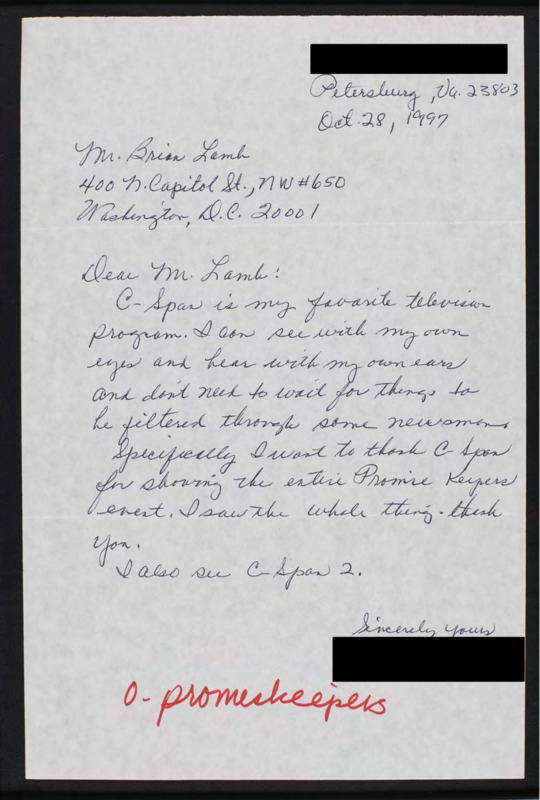 Petersburg, Va. 23803
Oct. 28, 1997
Mr. Brian Lamb
400 N. Capitol St., NW #650
Washington, D.C. 20001
Dear Mr. Lamb:
C-Span is my favorite television
program. I can see with my own
eyes and hear with my own ears
and don't need to wait for things to
be filtered through some newsman.
Specifically I want to thank C-Span
for showing the entire Promise Keepers
event. I saw the whole thing - thank
you.
I also see C-Span 2.
Sincerely yours
O- promeskeepers